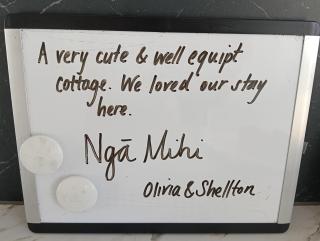 A very cute & well equipt
cottage. We loved our stay
here.
Ngā Mihi
Olivia & Shellton